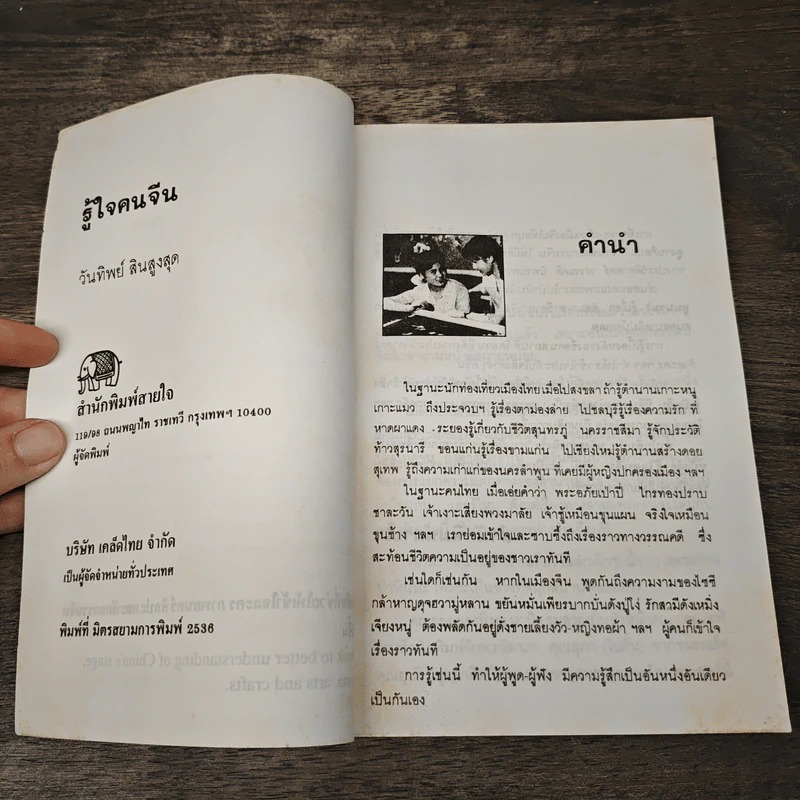 รู้ใจคนจีน
วันทิพย์ สินสูงสุด
สำนักพิมพ์สายใจ
119/98 ถนนพญาไท ราชเทวี กรุงเทพฯ 10400
ผู้จัดพิมพ์
บริษัท เคล็ดไทย จำกัด
เป็นผู้จัดจำหน่ายทั่วประเทศ
พิมพ์ที่ มิตรสยามการพิมพ์ 2536
คำนำ
ในฐานะนักท่องเที่ยวเมืองไทย เมื่อไปสงขลา ถ้ารู้ตำนานเกาะหนู
เกาะแมว ถึงประจวบฯ รู้เรื่องตาม่องล่าย ไปชลบุรีรู้เรื่องความรัก ที่
หาดผาแดง ระยองรู้เกี่ยวกับชีวิตสุนทรภู่ นครราชสีมา รู้จักประวัติ
ท้าวสุรนารี ขอนแก่นรู้เรื่องขามแก่น ไปเชียงใหม่รู้ตำนานสร้างดอย
สุเทพ รู้ถึงความเก่าแก่ของนครลำพูน ที่เคยมีผู้หญิงปกครองเมือง ฯลฯ
ในฐานะคนไทย เมื่อเอ่ยคำว่า พระอภัยเป่าปี่ ไกรทองปราบ
ชาละวัน เจ้าเงาะเสี่ยงพวงมาลัย เจ้าชู้เหมือนขุนแผน จริงใจเหมือน
ขุนช้าง ฯลฯ เราย่อมเข้าใจและซาบซึ้งถึงเรื่องราวทางวรรณคดี ซึ่ง
สะท้อนชีวิตความเป็นอยู่ของชาวเราทันที
เช่นใดก็เช่นกัน หากในเมืองจีน พูดกันถึงความงามของไซซี
กล้าหาญดุจฮวามู่หลาน ขยันหมั่นเพียรบากบั่นดังปู่โง่ รักสามีดังเหมิ่ง
เจียงหนู่ ต้องพลัดกันอยู่ดั่งชายเลี้ยงวัว-หญิงทอผ้า ฯลฯ ผู้คนก็เข้าใจ
เรื่องราวทันที
การรู้เช่นนี้ ทำให้ผู้พูด-ผู้ฟัง มีความรู้สึกเป็นอันหนึ่งอันเดียว
เป็นกันเอง